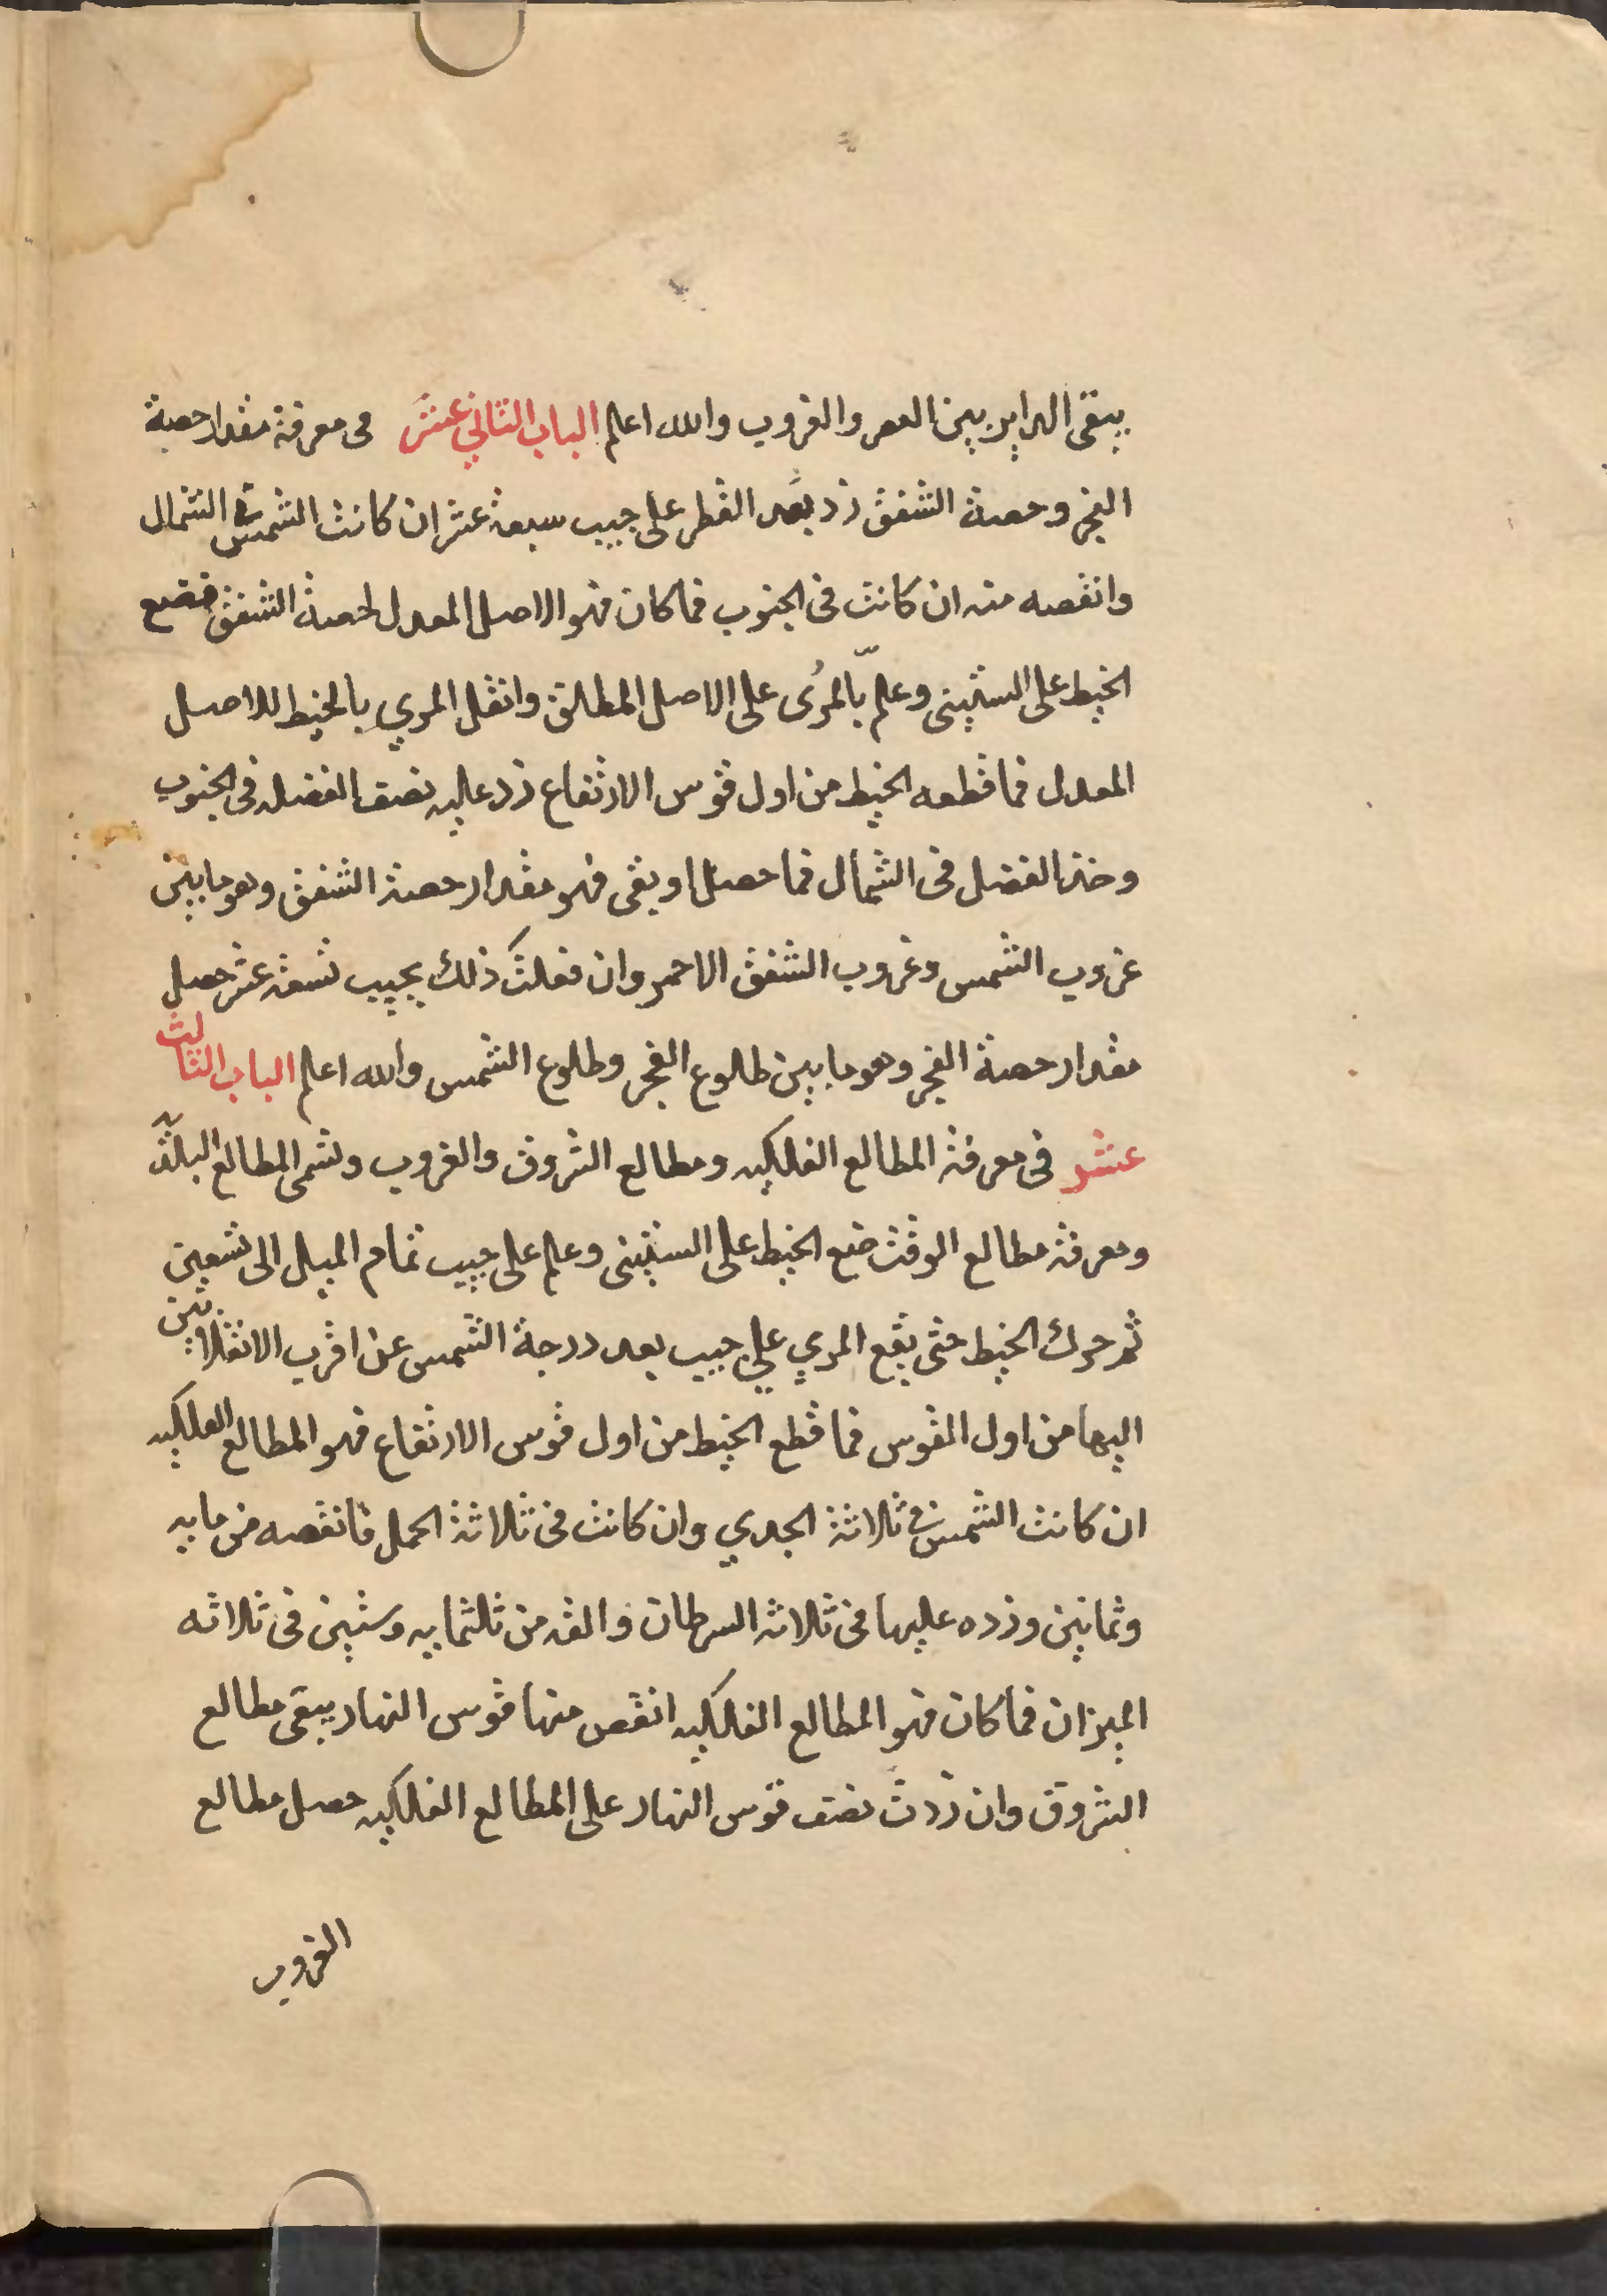 يبقى الداير بين العصر والغروب والله اعلم الباب الثاني عشر فى معرفة مقدار حصة
الفجر وحصة الشفق زد بعد القطر على جيب سبعة عشر ان كانت الشمس في الشمال
وانقصه منه ان كانت فى الجنوب فما كان فهو الاصل المعدل لحصة الشفق فضع
الخيط على الستينى وعلم بالمرى على الاصل المطلق وانقل المري بالخيط للاصل
المعدل فما قطعه الخيط من اول قوس الارتفاع زد عليه نصف الفضله فى الجنوب
وخذ الفضل فى الشمال فما حصل او بقى فهو مقدار حصة الشفق وهو ما بين
غروب الشمس وغروب الشفق الاحمر وان فعلت ذلك بجيب تسعة عشر حصل
مقدار حصة الفجر وهو ما بين طلوع الفجر وطلوع الشمس والله اعلم الباب الثالث
عشر فى معرفة المطالع الفلكيه ومطالع الشروق والغروب وتسمى المطالع البلدية
ومعرفة مطالع الوقت ضع الخيط على الستينى وعلم على جيب تمام الميل الى تسعين
ثم حرك الخيط حتى يقع المري على جيب بعد درجة الشمس عن اقرب الانقلابين
اليها من اول القوس فما قطع الخيط من اول قوس الارتفاع فهو المطالع الفلكيه
ان كانت الشمس في ثلاثة الجدي وان كانت فى ثلاثة الحمل فانقصه من مايه
وثمانين وزده عليها فى ثلاثة السرطان والقه من ثلثمايه وستين فى ثلاثه
الميزان فما كان فهو المطالع الفلكيه انقص منها قوس النهار يبقى مطالع
الشروق وان زدت نصف قوس النهار على المطالع الفلكيه حصل مطالع
الغروب